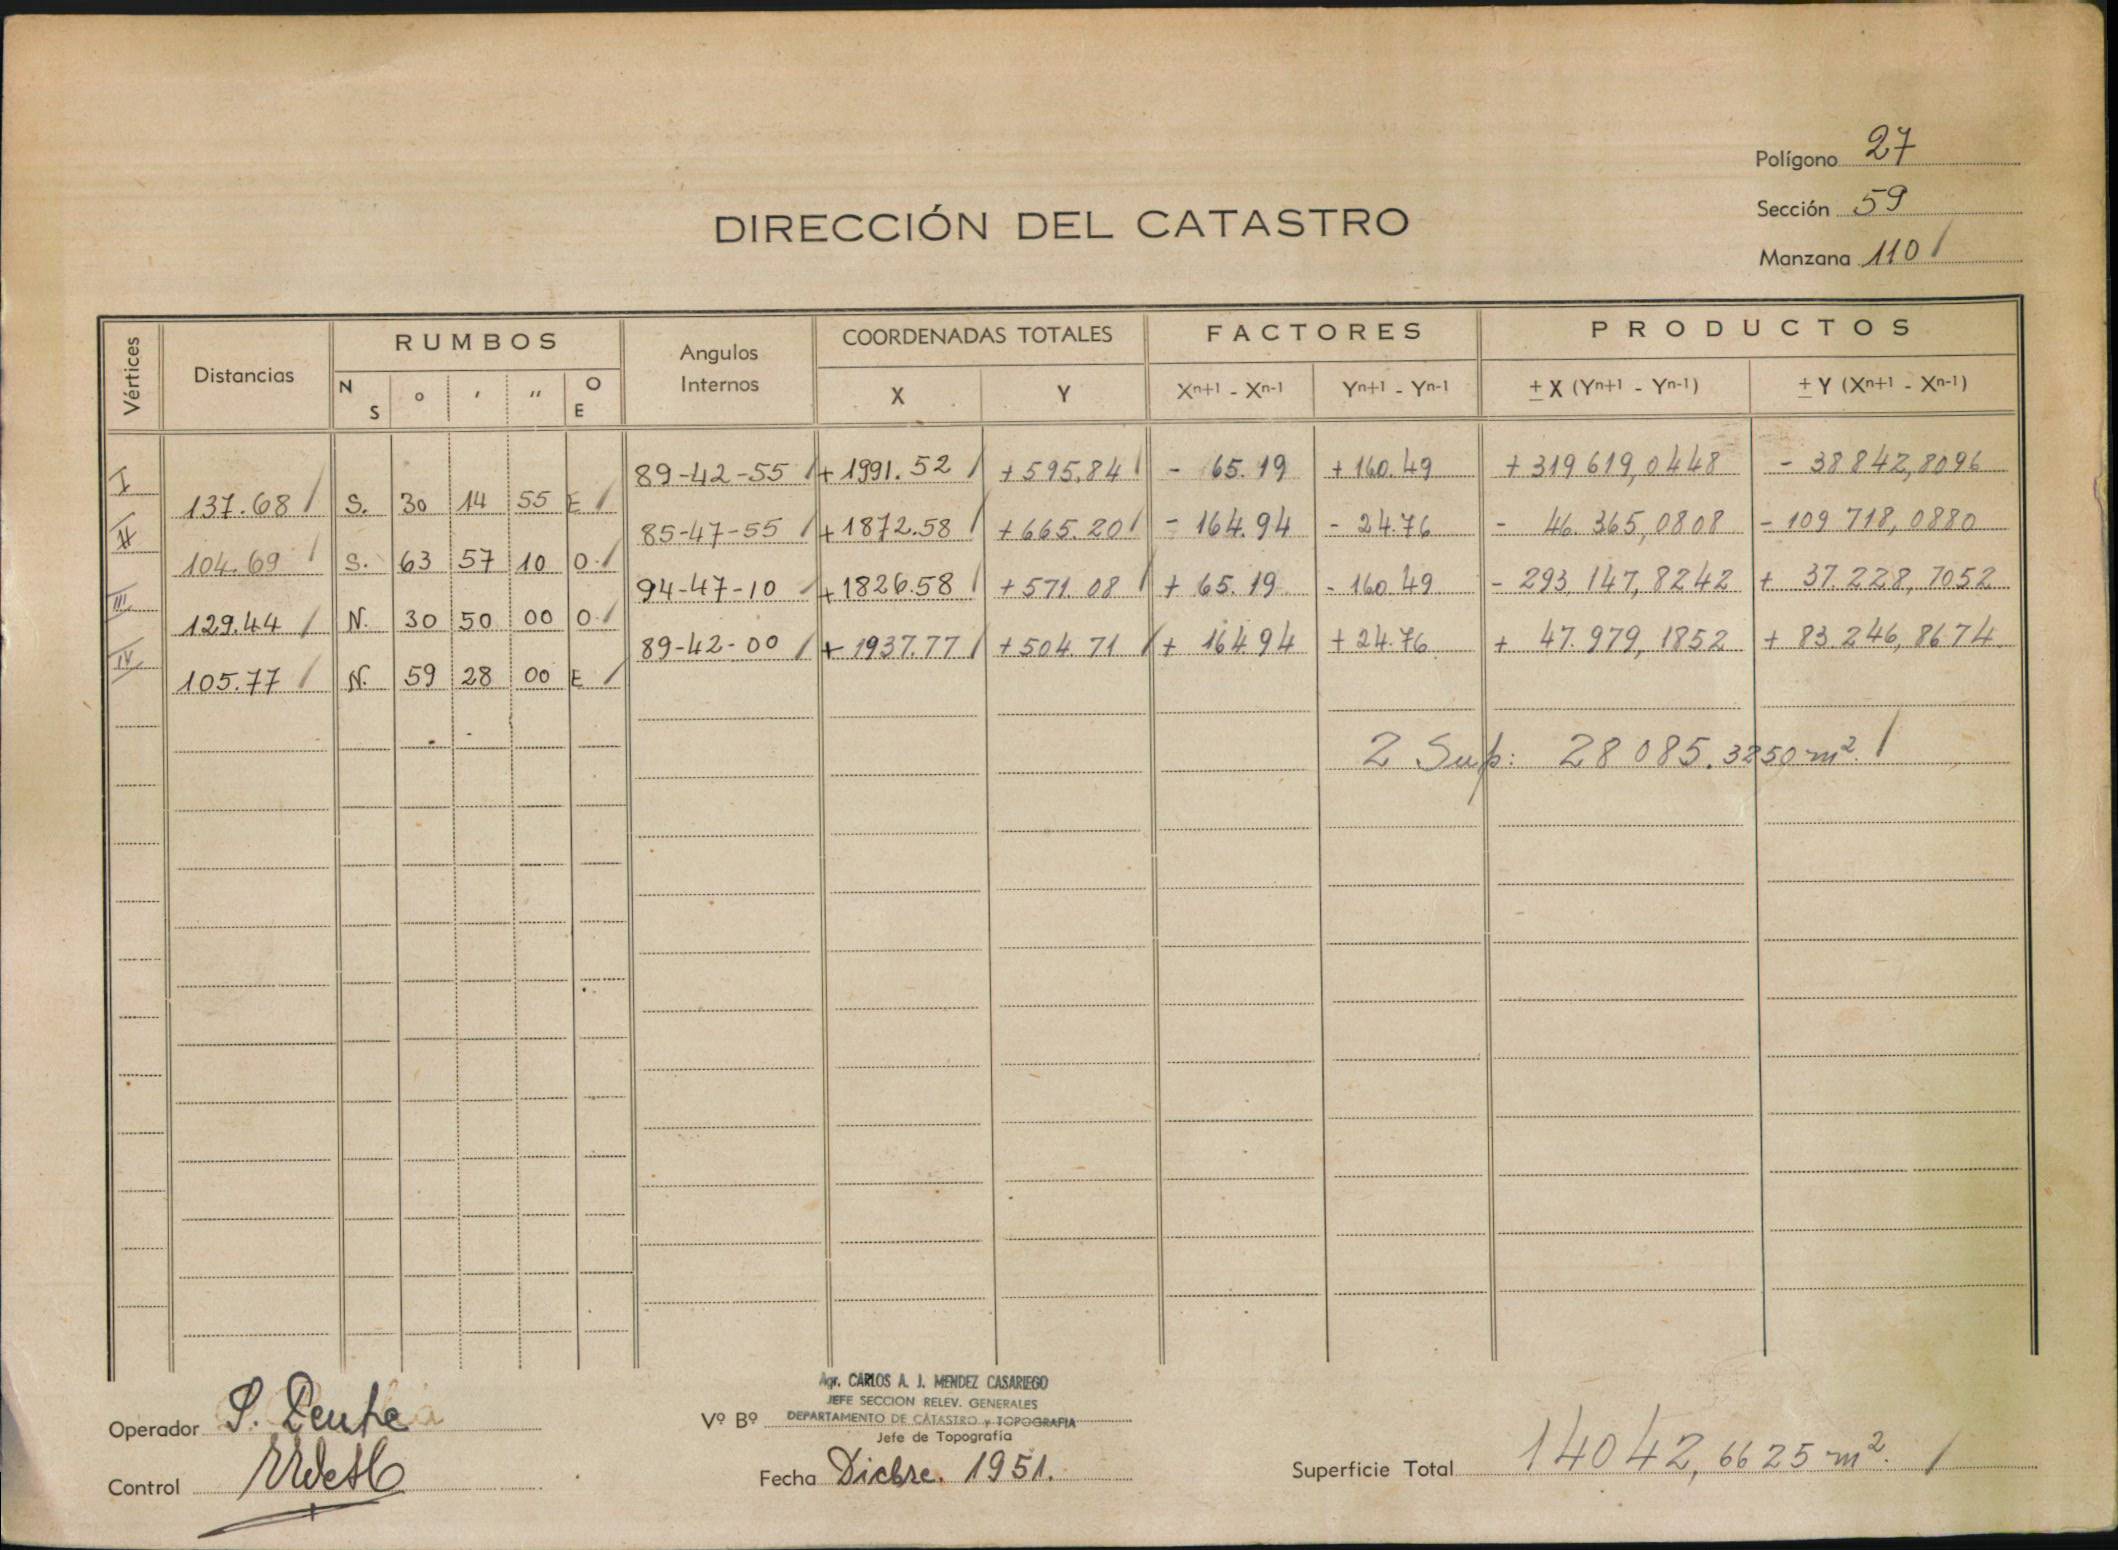 Polígono 27
Sección 59
Manzana 110 /
DIRECCIÓN DEL CATASTRO
Vértices Distancias RUMBOS Angulos Internos COORDENADAS TOTALES FACTORES PRODUCTOS
N S ° ' " O E X Y Xn+1 - Xn-1 Yn+1 - Yn-1 ± X (Yn+1 - Yn-1) ± Y (Xn+1 - Xn-1)
I 89-42-55 / + 1991.52 / + 595.84 / - 65.19 + 160.49 + 319 619,0448 - 38 842,8096
137.68 / S. 30 14 55 E /
II 85-47-55 / + 1872.58 / + 665.20 / - 164.94 - 24.76 - 46.365,0808 - 109 718,0880
104.69 / S. 63 57 10 O. /
III 94-47-10 / + 1826.58 / + 571.08 / + 65.19 - 160.49 - 293,147,8242 + 37.228,7052
129.44 / N. 30 50 00 O. /
IV 89-42-00 / + 1937.77 / + 504.71 / + 164.94 + 24.76 + 47.979,1852 + 83.246,8674
105.77 / N. 59 28 00 E /
2 Sup: 28 085.3250 m². /
Agr. CARLOS A. J. MENDEZ CASARIEGO
JEFE SECCION RELEV. GENERALES
Operador Vº Bº DEPARTAMENTO DE CATASTRO y TOPOGRAFIA
Jefe de Topografía
Control Fecha Dicbre. 1951. Superficie Total 14042,6625 m². /